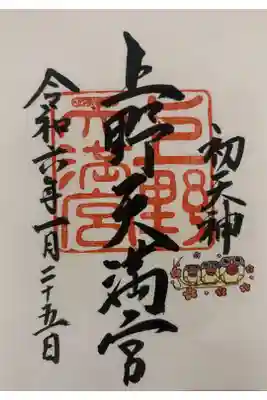 初天神
上野天満宮
令和六年一月二十五日
上野天満宮